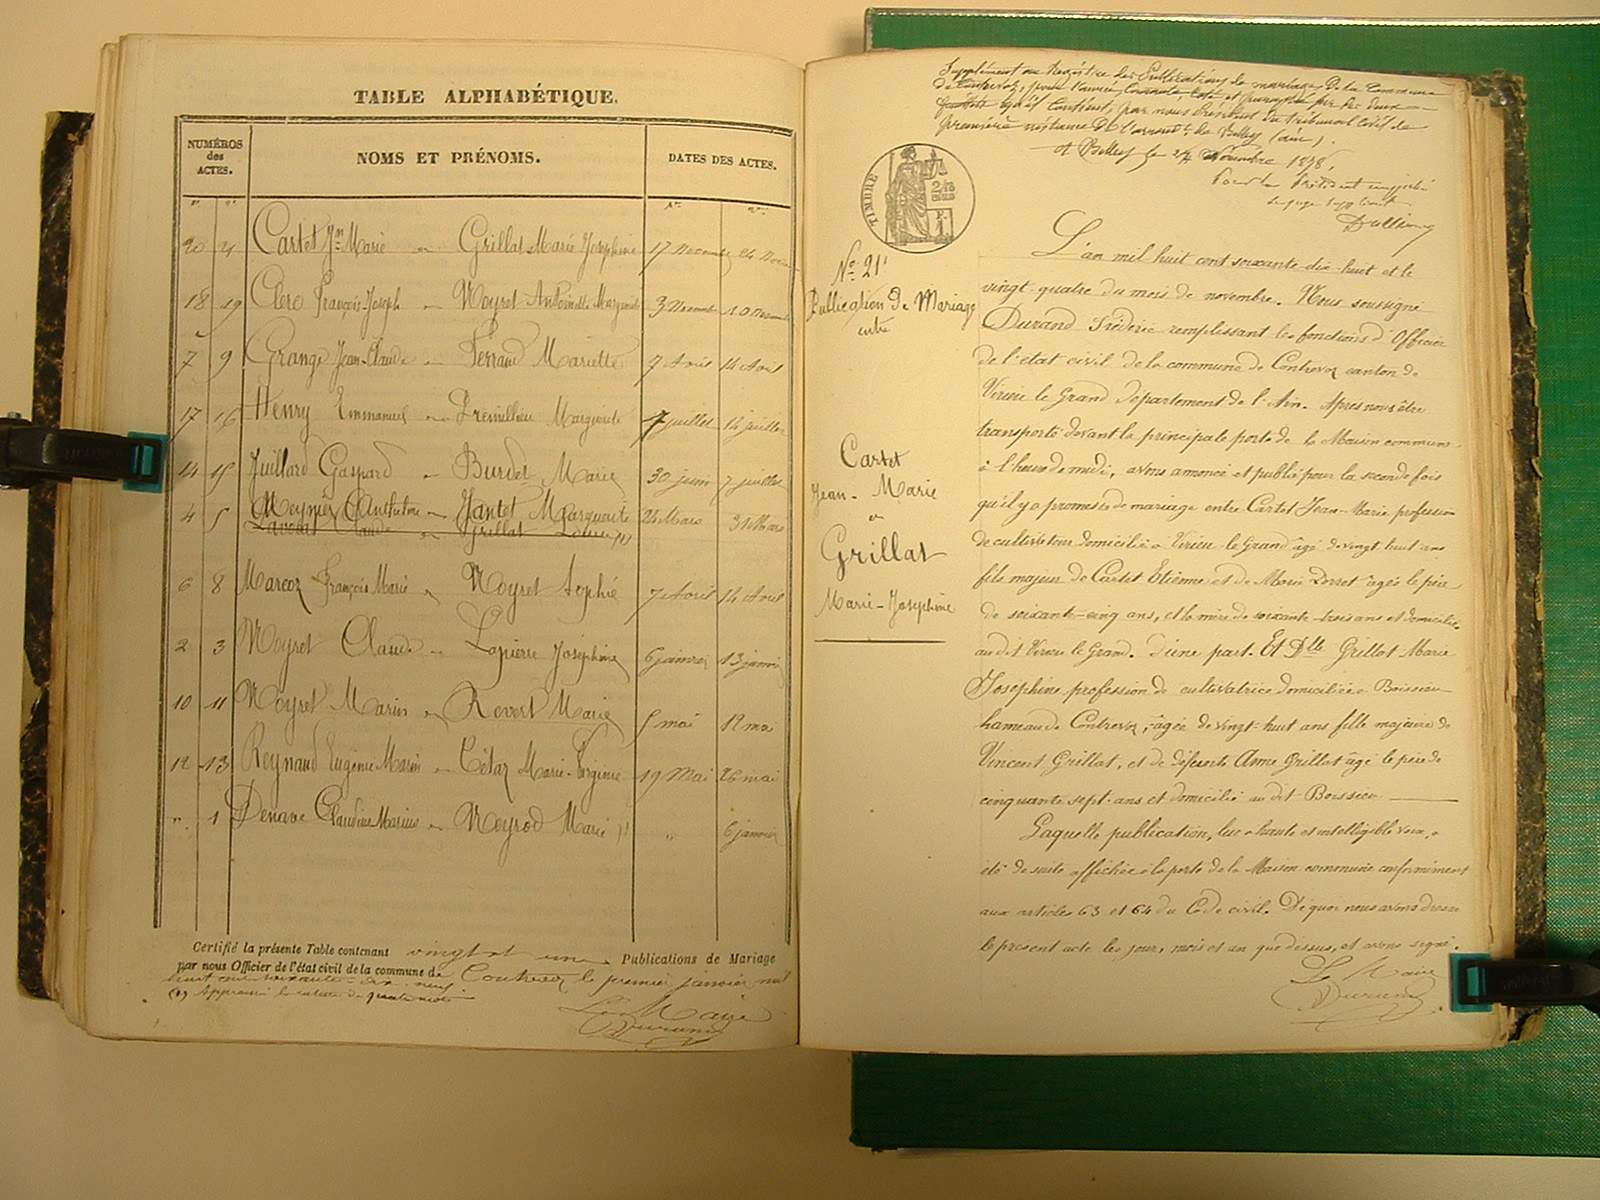 TABLE ALPHABÉTIQUE.
NUMÉROS des ACTES.
NOMS ET PRÉNOMS.
DATES DES ACTES.
20 21 Cartet Jn Marie Grillat Marie Josephine 17 Novembre 24
18 19 Clerc François Joseph Moyret Antoinette Marguerite 3 Novembre 10 Novembre
7 9 Grange Jean-Claude Ferrand Mariette 7 Avril 14 Avril
17 16 Henry Emmanuel Marguerite 7 juillet 14 juillet
14 15 Juillard Gaspard Burdet Marie 30 juin 7 juillet
4 5 Meynier Anthelme Jantet Marguerite 24 Mars 31 Mars
Claude Grillat
6 8 Marcoz François Marie Moyret Sophie 7 Avril 14 Avril
2 3 Moyret Claude Lapierre Joséphine 6 janvier 13 janvier
10 11 Moyret Marin Revert Marie 5 mai 12 mai
12 13 Reynaud Eugénie Marin Marie-Virginie 19 Mai 26 mai
" 1 Denave Claudine Marie " 6 janvier
Certifié la présente Table contenant vingt et une Publications de Mariage
par nous Officier de l'état civil de la commune de Contrevoz le premier janvier mil
huit cent soixante dix neuf
Le Maire
Durand
Supplément au Registre des Publications de mariage de la Commune
de Contrevoz, pour l'année
qu'il contient, par nous Président du tribunal civil de
première instance de l'arrondt de Belley (ain).
A Belley le 24 Novembre 1878.
Pour le Président empêché
Le juge suppléant
TIMBRE
No 21
Publication de Mariage
entre
Cartet
Jean-Marie
et
Grillat
Marie-Joséphine
L'an mil huit cent soixante dix-huit et le
vingt-quatre du mois de novembre. Nous soussigné
Durand Frédéric remplissant les fonctions d'Officier
de l'état civil de la commune de Contrevoz canton de
Virieu le Grand département de l'Ain. Après nous être
transporté devant la principale porte de la Maison commune
à l'heure de midi, avons annoncé et publié pour la seconde fois
qu'il y a promesse de mariage entre Cartet Jean-Marie profession
de cultivateur domicilié à Virieu-le-Grand âgé de vingt-huit ans
fils majeur de Cartet Etienne et de Marie Dorret âgés le père
de soixante-cinq ans, et la mère de soixante-trois ans et domiciliés
au dit Virieu le Grand. d'une part. Et Dlle Grillat Marie
Joséphine profession de cultivatrice domiciliée à Boissieu
hameau de Contrevoz, âgée de vingt-huit ans fille majeure de
Vincent Grillat, et de défunte Anne Grillat âgé le père de
cinquante sept-ans et domicilié au dit Boissieu
Laquelle publication, lue à haute et intelligible voix, a
été de suite affichée à la porte de la Maison commune conformément
aux articles 63 et 64 du Code civil. De quoi nous avons dressé
le présent acte les jour, mois et an que dessus, et avons signé.
Le Maire
Durand